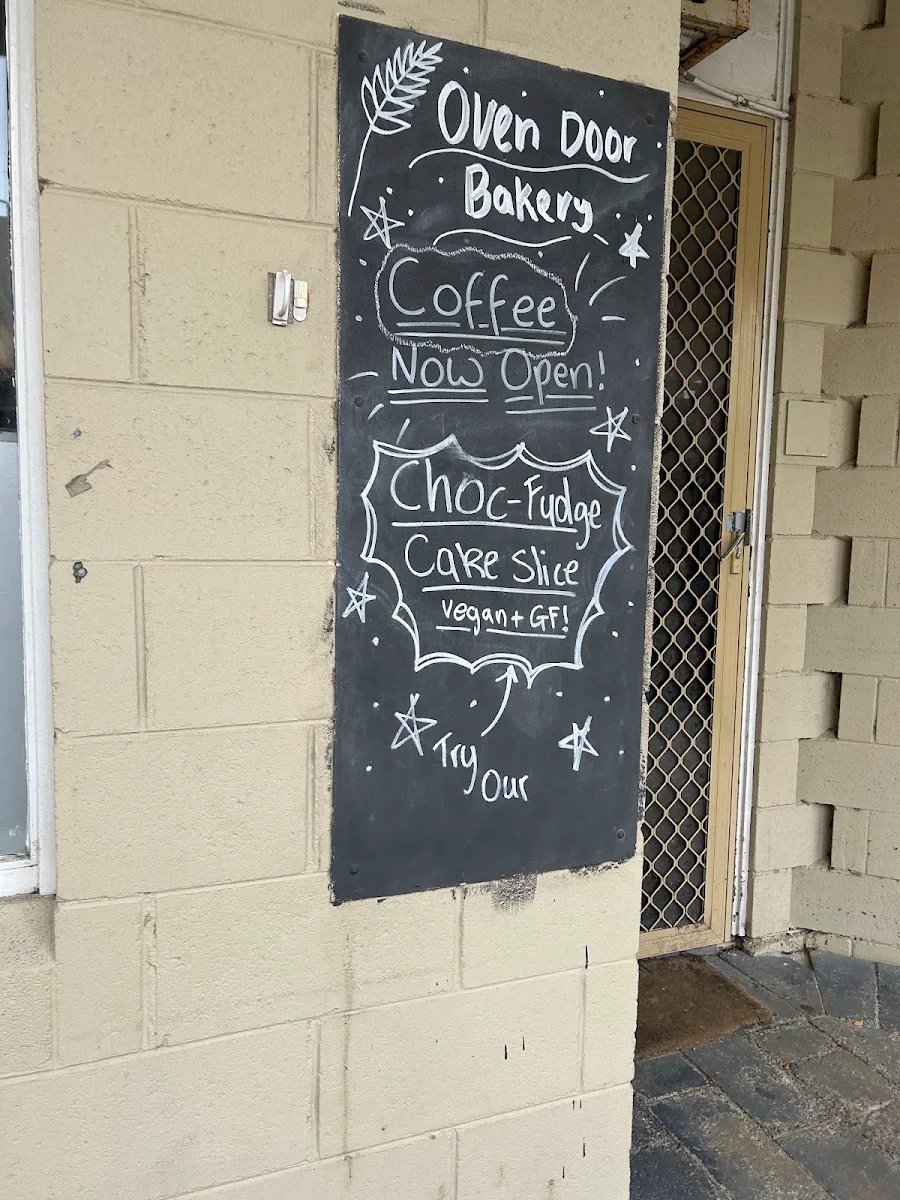 Oven Door
Bakery
Coffee
Now Open!
Choc-Fudge
Cake Slice
vegan + GF!
Try
Our